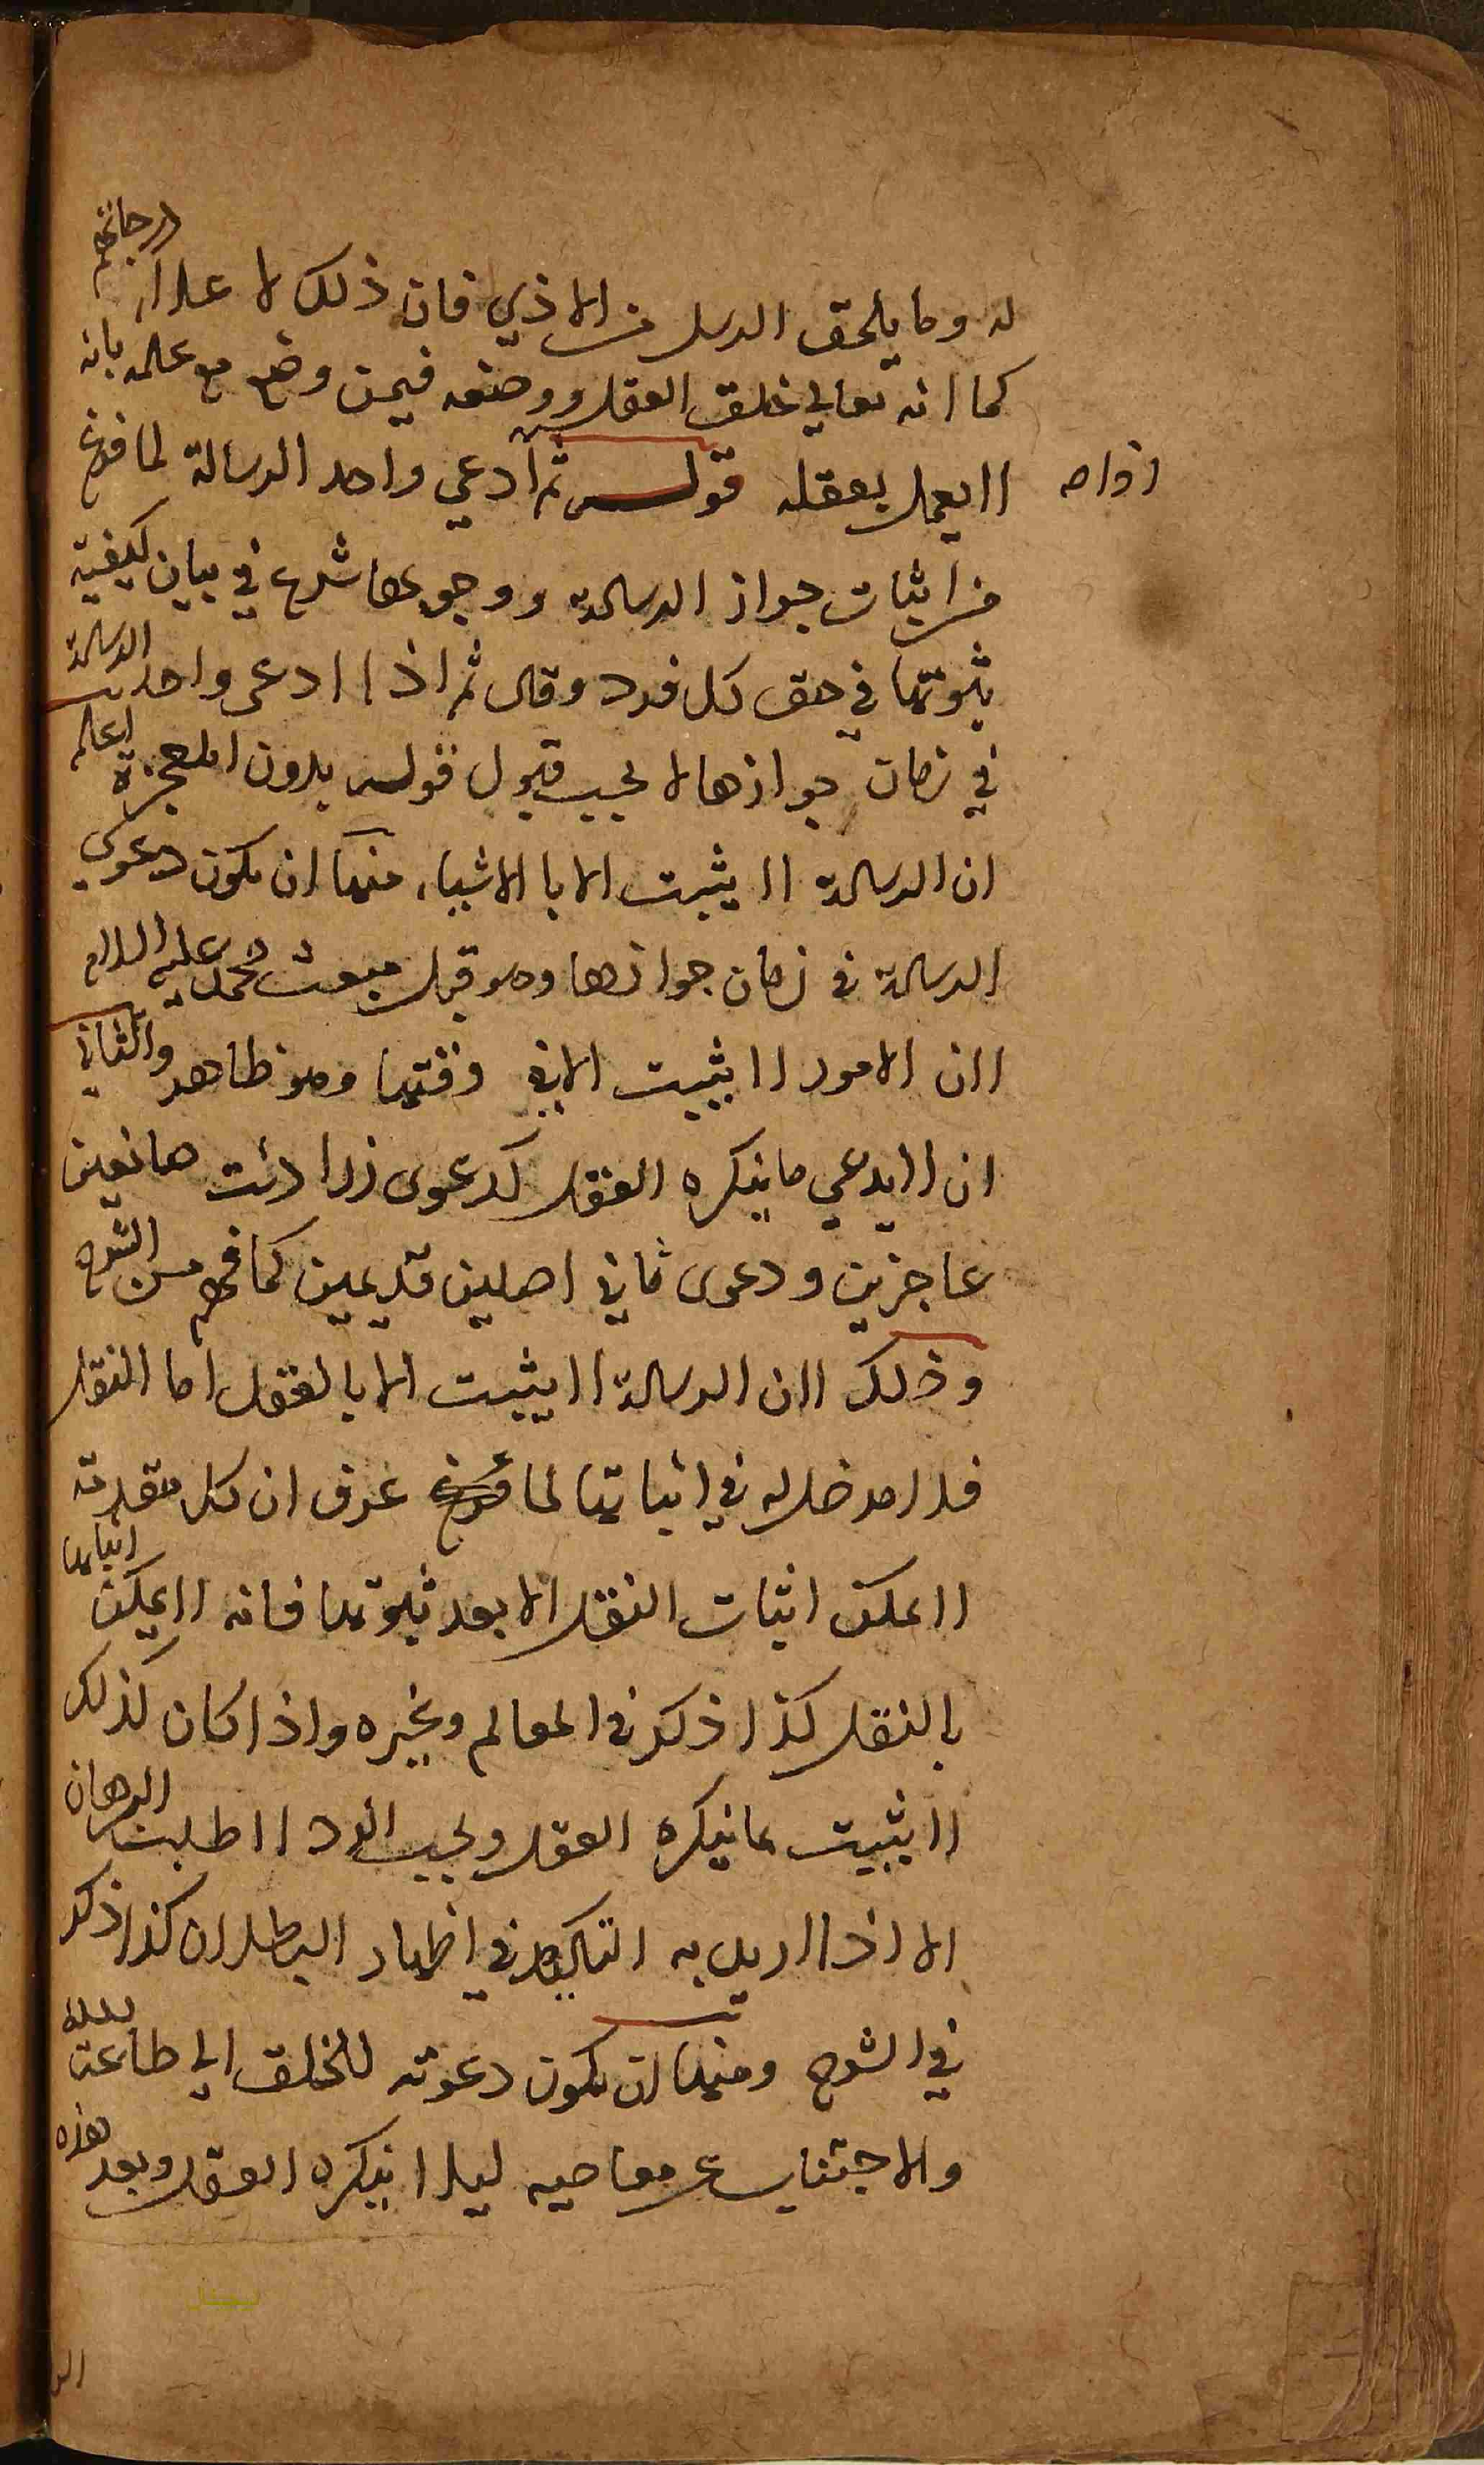 له وما يلحق الرسل من الاذي فان ذلك لا علاا درجاتهم
كما انه تعالي خلق العقل ووضعه فيمن وضع مع علمه بانه
اا يعمل بعقله قولــه ثم ادعي واحد الرسالة لما فرغ
من اثبات جواز الرسالة ووجوبها شرع في بيان كيفية
ثبوتها في حق كل فرد وقال ثم اذا ادعى واحد الرسالة
في زمان جوازها لا يجب قبول قوله بدون المعجزة اعلم
ان الرسالة اا يثبت الا با الاشياء منها ان يكون دعوي
الرسالة في زمان جوازها وهو قبل مبعث محمد عليه السلام
اان الامور اا يثبت الا في وقتها وهو ظاهر والثاني
ان اا يدعي ما ينكره العقل كدعوى زرادشت صانعين
عاجزين ودعوى ماني اصلين قديمين كما فهم من الشرح
وذلك اان الرسالة اا يثبت الا بالعقل اما النقل
فلا مدخل له في اثباتها لما عرف ان كل مقدمة
اا يمكن اثبات النقل الا بعد ثبوتها فانه اا يمكن اثباتها
بالنقل كذا ذكر في المعالم وغيره واذا كان كذلك
اا يثبت بما ينكره العقل ويجب الرد اا طلب البرهان
الا اذا اريد به التاكيد في اظهار البطلان كذا ذكر
في الشرح ومنها ان يكون دعوته للخلق الي طاعة الله
والاجتناب عن معاصيه ليلا ينكره العقل وبعد هذه